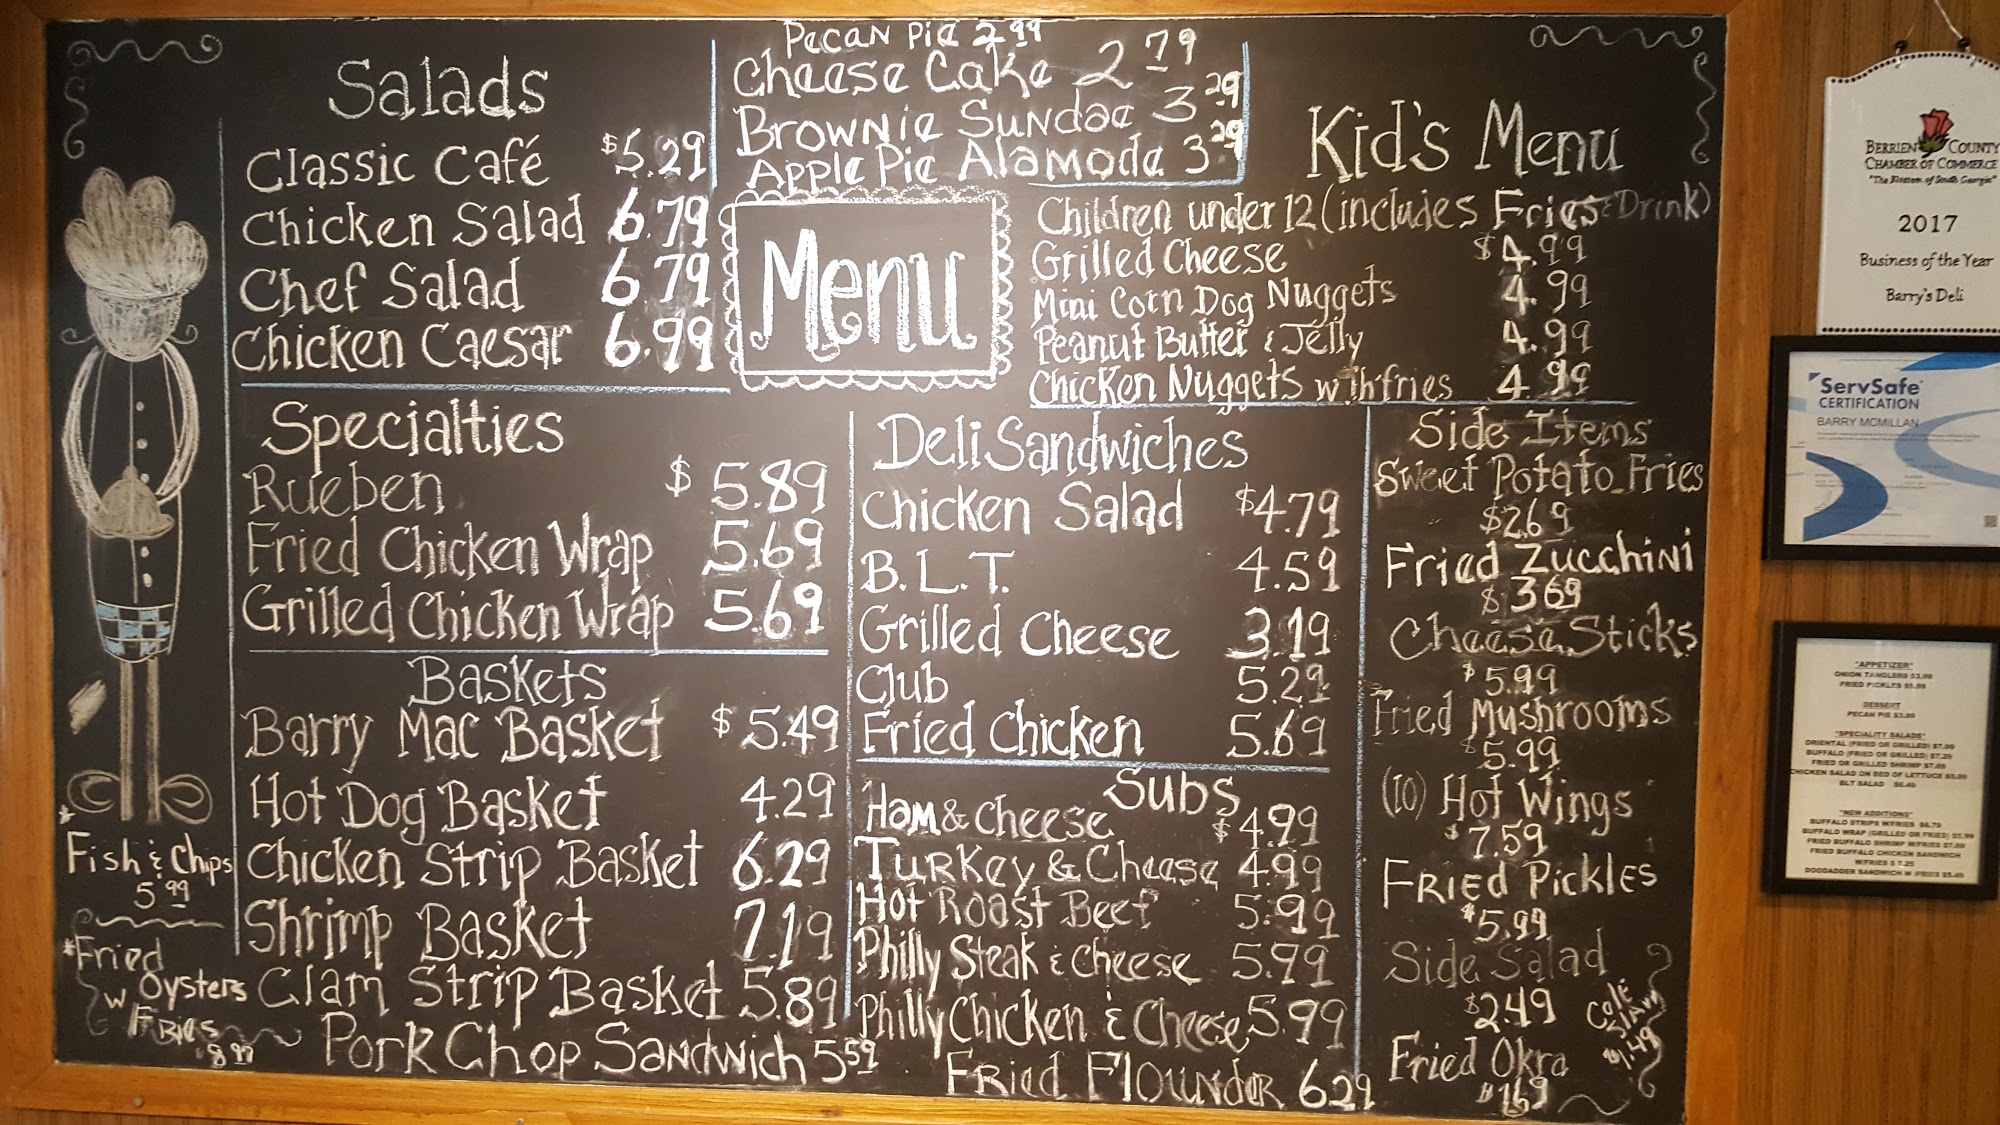 Pecan Pie 2.99
Cheese Cake 2.79
Brownie Sundae 3.29
Apple Pie Alamode 3.29
Salads
Classic Café $5.29
Chicken Salad 6.79
Chef Salad 6.79
Chicken Caesar 6.99
Menu
Kid's Menu
Children under 12 (includes Fries & Drink)
Grilled Cheese $4.99
Mini Corn Dog Nuggets 4.99
Peanut Butter & Jelly 4.99
Chicken Nuggets with fries 4.99
Specialties
Rueben $5.89
Fried Chicken Wrap 5.69
Grilled Chicken Wrap 5.69
Baskets
Barry Mac Basket $5.49
Hot Dog Basket 4.29
Chicken Strip Basket 6.29
Shrimp Basket 7.19
Clam Strip Basket 5.89
Pork Chop Sandwich 5.59
*Fish & Chips
5.99
*Fried
Oysters
w Fries
8.99
Deli Sandwiches
Chicken Salad $4.79
B.L.T. 4.59
Grilled Cheese 3.19
Club 5.29
Fried Chicken 5.69
Subs
Ham & Cheese $4.99
Turkey & Cheese 4.99
Hot Roast Beef 5.99
Philly Steak & Cheese 5.99
Philly Chicken & Cheese 5.99
Fried Flounder 6.29
Side Items
Sweet Potato Fries
$2.69
Fried Zucchini
$3.69
Cheese Sticks
$5.99
Fried Mushrooms
$5.99
(10) Hot Wings
$7.59
Fried Pickles
$5.99
Side Salad
$2.49
Cole
Slaw
$1.49
Fried Okra
$1.69
BERRIEN COUNTY
CHAMBER OF COMMERCE
"The Blossom of South Georgia"
2017
Business of the Year
Barry's Deli
ServSafe
CERTIFICATION
BARRY MCMILLAN
"APPETIZER"
ONION TANGLERS $3.99
FRIED PICKLES $5.99
DESSERT
PECAN PIE $3.99
"SPECIALITY SALADS"
ORIENTAL (FRIED OR GRILLED) $7.99
BUFFALO (FRIED OR GRILLED) $7.29
FRIED OR GRILLED SHRIMP $7.69
CHICKEN SALAD ON BED OF LETTUCE $5.99
BLT SALAD $6.49
"NEW ADDITIONS"
BUFFALO STRIPS W/FRIES $6.79
BUFFALO WRAP (GRILLED OR FRIED) $5.99
FRIED BUFFALO SHRIMP W/FRIES $7.69
FRIED BUFFALO CHICKEN SANDWICH
W/FRIES $ 7.25
DOODADDER SANDWICH W /FRIES $5.49